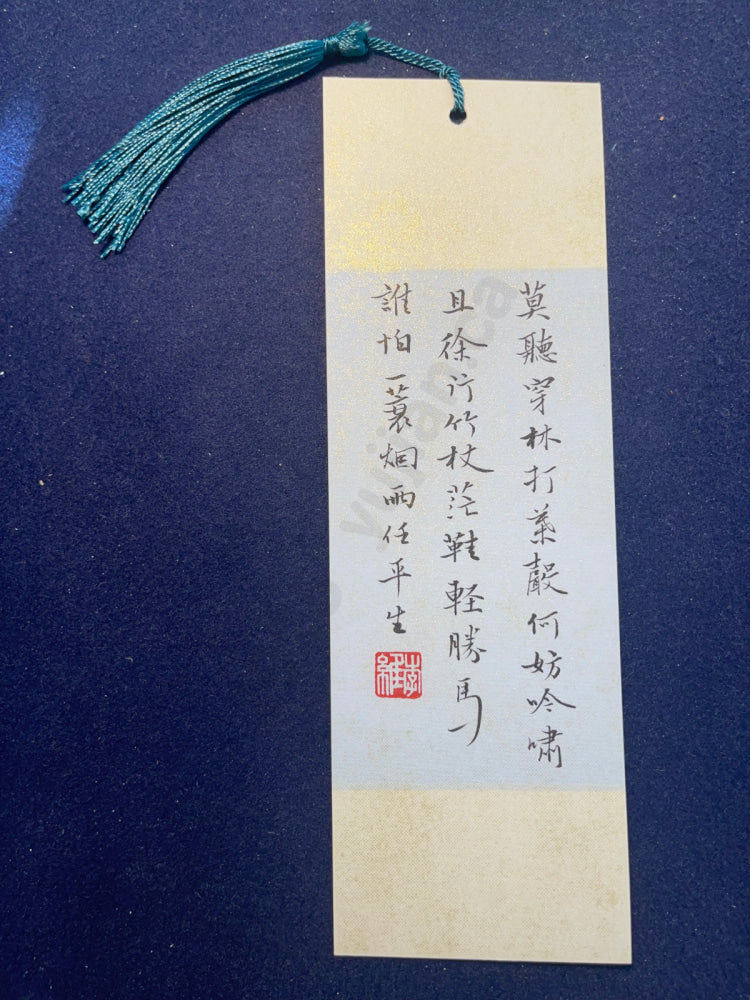 莫聽穿林打葉聲何妨吟嘯
且徐行竹杖茫鞋軽勝馬
誰怕一蓑烟雨任平生
yujian.ca